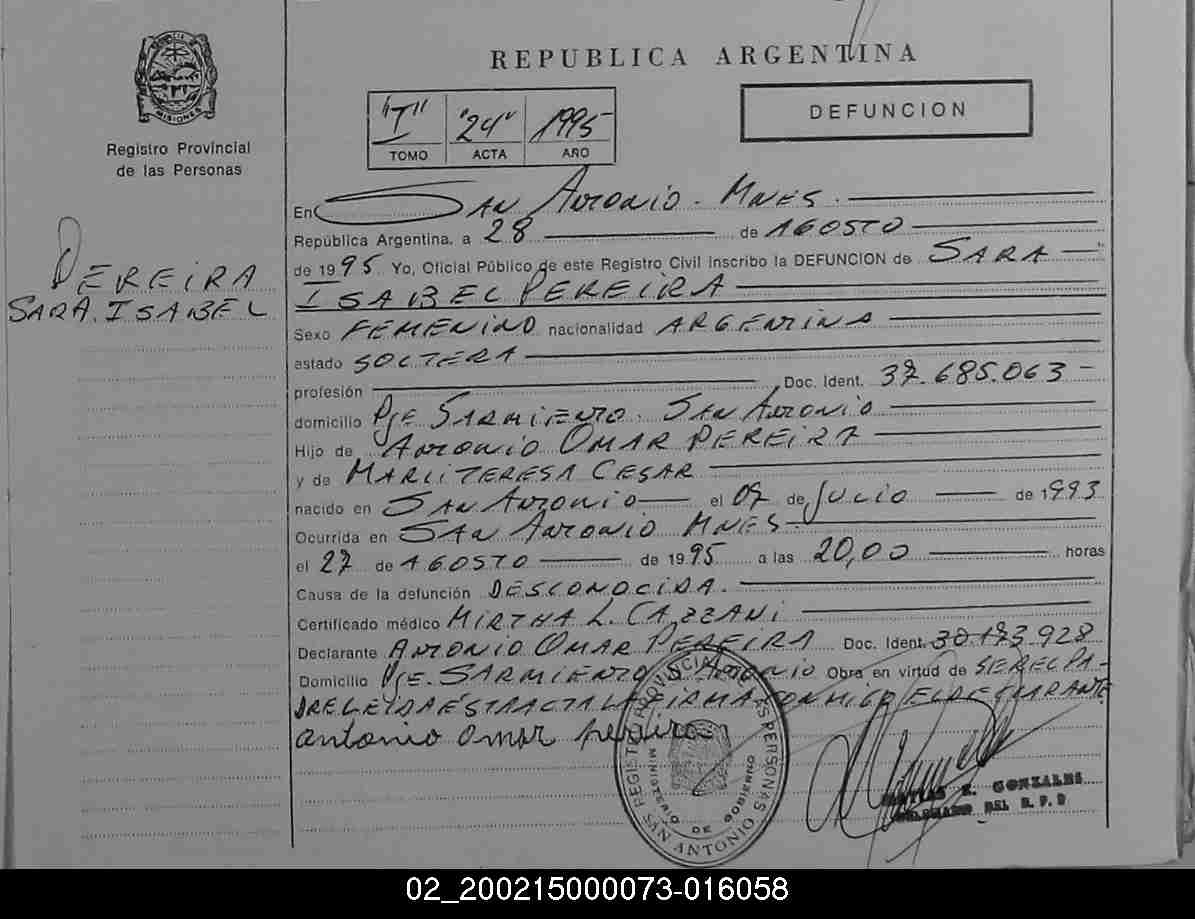 REPUBLICA ARGENTINA
MISIONES
Registro Provincial
de las Personas
DEFUNCION
"I" "24" 1995
TOMO ACTA AÑO
PEREIRA
SARA. ISABEL
En SAN ANTONIO - MNES.
República Argentina, a 28 de AGOSTO
de 1995 Yo, Oficial Público de este Registro Civil inscribo la DEFUNCION de SARA
ISABEL PEREIRA
Sexo FEMENINO nacionalidad ARGENTINA
estado SOLTERA
profesión Doc. Ident. 37.685.063
domicilio Pje SARMIENTO. SAN ANTONIO
Hijo de ANTONIO OMAR PEREIRA
y de MARLI TERESA CESAR
nacido en SAN ANTONIO el 07 de JULIO de 1993
Ocurrida en SAN ANTONIO MNES.
el 27 de AGOSTO de 1995 a las 20,00 horas
Causa de la defunción DESCONOCIDA.
Certificado médico MIRTHA L. CAZZANI
Declarante ANTONIO OMAR PEREIRA Doc. Ident. 30.173.928
Domicilio Pje. SARMIENTO S. ANTONIO Obra en virtud de SER EL PA-
DRE LEIDA ÉSTA ACTA LA FIRMA CONMIGO EL DECLARANTE
antonio omar pereira
REGISTRO PROVINCIAL DE LAS PERSONAS
MINISTERIO DE GOBIERNO
SAN ANTONIO
E. GONZALES
DEL R. P. P
02_200215000073-016058